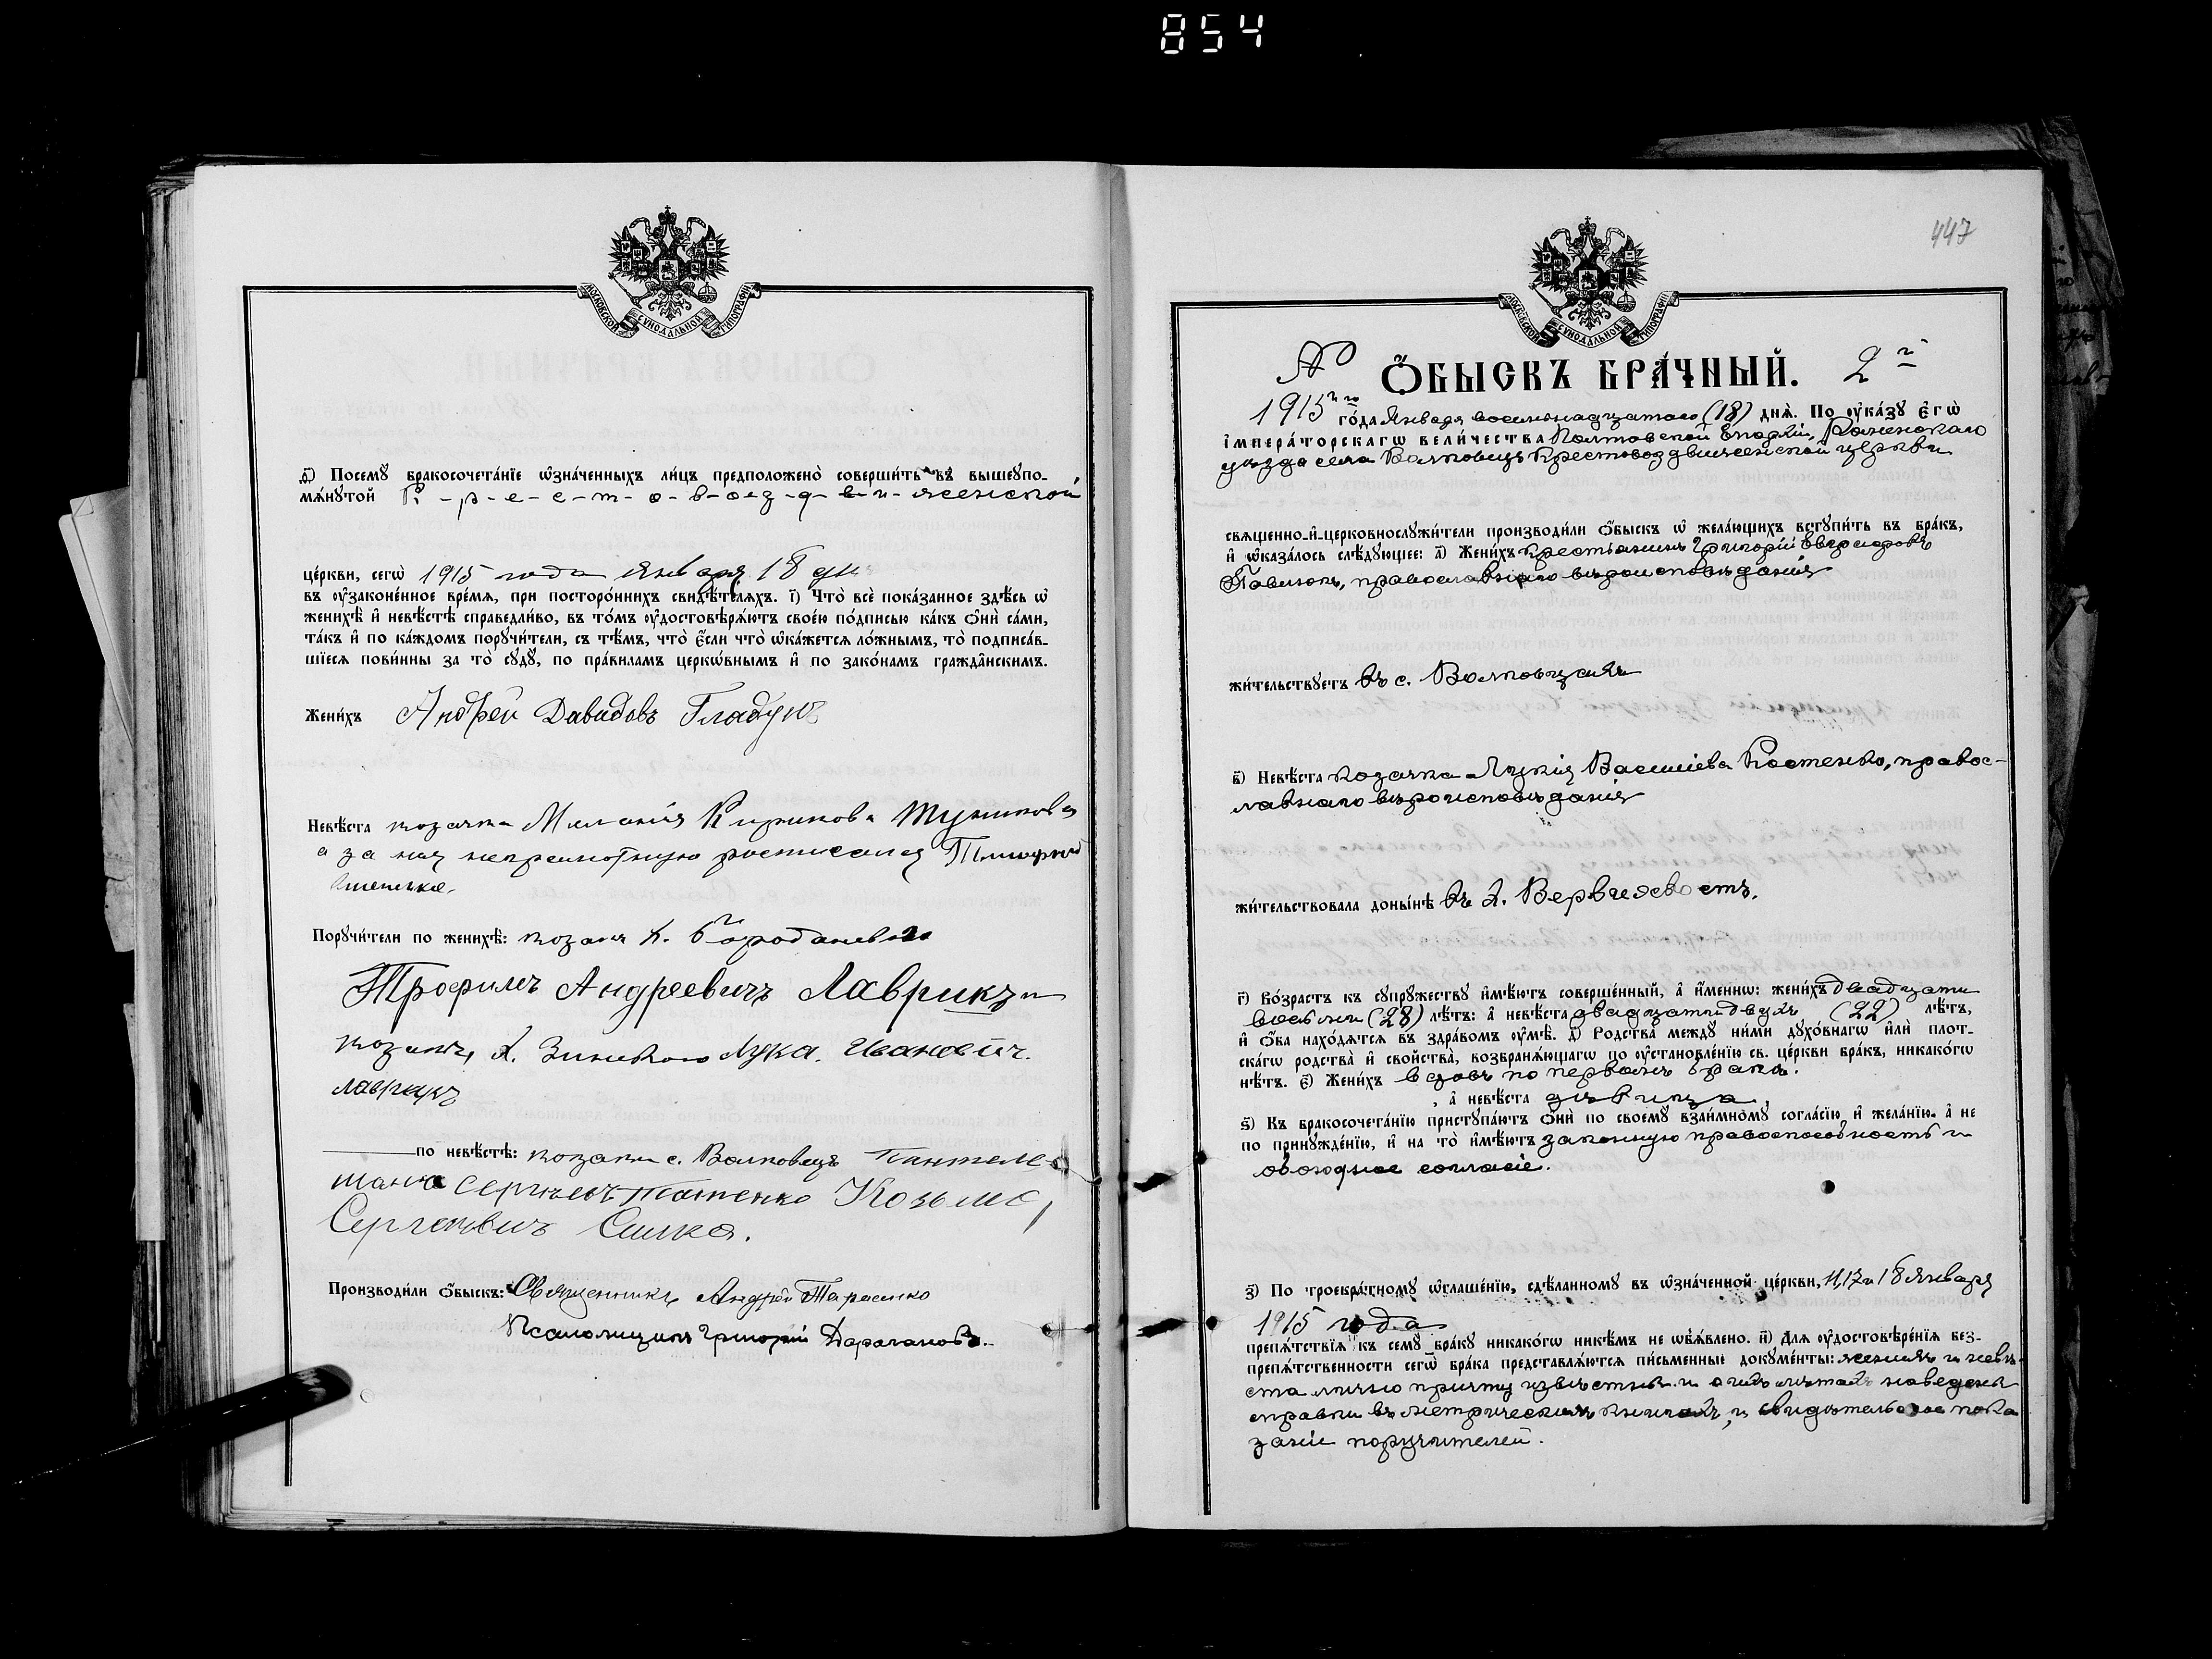 854
МОСКОВСКОЙ СУНОДАЛЬНОЙ ТИПОГРАФІИ
ѳ҃) Посемꙋ бракосочета́нїе ѡ҆зна́ченныхъ ли́цъ предположено̀ соверши́ть въ вышеꙋпо-
мѧ́нꙋтой К-р-е-с-т-о-в-о-з-д-в-и-женской
це́ркви, сегѡ̀ 1915 года января 18 дн
въ ᲂу҆законе́нное вре́мѧ, при посторо́ннихъ свидѣ́телѧхъ. і҃) Что̀ всѐ пока́занное здѣ́сь ѡ҆
женихѣ̀ и҆ невѣ́стѣ справедли́во, въ то́мъ ᲂу҆достовѣрѧ́ютъ свое́ю по́дписью ка́къ ѻ҆нѝ са́ми,
та́къ и҆ по ка́ждомъ порꙋчи́тели, съ тѣ́мъ, что̀ є҆́сли что̀ ѡ҆ка́жетсѧ ло́жнымъ, то̀ подписа́в-
шїесѧ пови́нны за то̀ сꙋдꙋ̀, по пра́виламъ церкѡ́внымъ и҆ по зако́намъ гражда́нскимъ.
Жени́хъ Андрей Давидовъ Гладунъ
Невѣ́ста козачка Меланія Кирикова
а за нея неграмотную росписался
Порꙋчи́тели по женихѣ̀: козакъ х.
Трофимъ Андреевичъ Лаврикъ и
козакъ х. Лука Ивановичъ
Лаврикъ
по невѣ́стѣ: козаки с. Волковецъ
Козьма
Сергеевичъ
Производи́ли ѻ҆́быскъ: Священникъ Андрей Тарасенко
Псаломщикъ Григорій Дарагановъ.
447
МОСКОВСКОЙ СУНОДАЛЬНОЙ ТИПОГРАФІИ
№ Ѻ҆́БЫСКЪ БРА́ЧНЫЙ. 2й
1915го го́да Января восемьнадцатаго (18) днѧ̀. По ᲂу҆ка́зꙋ є҆гѡ̀
і҆мпера́торскагѡ вели́чества Полтавской Епархіи, Роменскаго
уѣзда села Волковецъ Крестовоздвиженской церкви
свѧщенно-и҆-церковнослꙋжи́тели производи́ли ѻ҆́быскъ ѡ҆ жела́ющихъ встꙋпи́ть въ бра́къ,
и҆ ѡ҆каза́лось слѣ́дꙋющее: а҃) Жени́хъ крестьянинъ Григорій
православнаго вѣроисповѣданія
жи́тельствꙋетъ въ с. Волковцахъ
в҃) Невѣ́ста козачка Лукія Василіева Костенко, правос-
лавнаго вѣроисповѣданія
жи́тельствовала доны́нѣ въ х.
г҃) Во́зрастъ къ сꙋпрꙋ́жествꙋ и҆мѣ́ютъ соверше́нный, а҆ и҆́меннѡ: жени́хъ двадцати
восьми (28) лѣ́тъ: а҆ невѣ́ста двадцати двухъ (22) лѣ́тъ,
и҆ ѻ҆́ба нахо́дѧтсѧ въ здра́вомъ ᲂу҆мѣ̀. д҃) Родства̀ междꙋ ни́ми дꙋхо́внагѡ и҆лѝ плот-
ска́гѡ родства̀ и҆ сво́йства, возбранѧ́ющагѡ по ᲂу҆становле́нїю св. це́ркви бра́къ, никако́гѡ
нѣ́тъ. є҃) Жени́хъ вдовъ по первомъ бракѣ.
, а҆ невѣ́ста дѣвица,
ѕ҃) Къ бракосочета́нїю пристꙋпа́ютъ ѻ҆нѝ по своемꙋ̀ взаи́мномꙋ согла́сїю и҆ жела́нїю, а҆ не
по принꙋжде́нїю, и҆ на то̀ и҆мѣ́ютъ законную правоспособность и
обоюдное согласіе.
з҃) По троекра́тномꙋ ѡ҆глаше́нїю, сдѣ́ланномꙋ въ ѡ҆зна́ченной це́ркви, 11, 17 и 18 января
1915 года
препѧ́тствїѧ къ семꙋ̀ бра́кꙋ никако́гѡ никѣ́мъ не ѡ҆б̾ѧ́влено. и҃) Длѧ ᲂу҆достовѣре́нїѧ без-
препѧ́тственности сегѡ̀ бра́ка представлѧ́ютсѧ пи́сьменные докꙋме́нты: женихъ и невѣ-
ста лично причту извѣстны и о ихъ лѣтахъ наведены
справки въ метрическихъ книгахъ, и свидѣтельское пока
заніе поручителей.